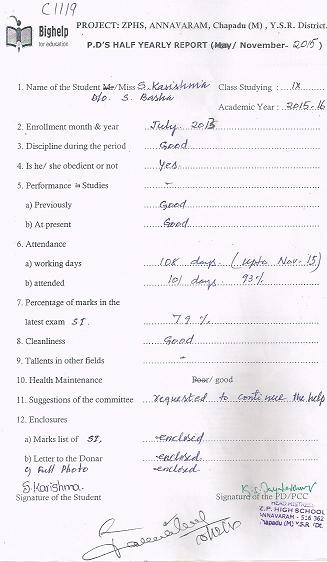 C1119
Bighelp
for education
PROJECT: ZPHS, ANNAVARAM, Chapadu (M) , Y.S.R. District.
P.D'S HALF YEARLY REPORT (May/ November- 2015)
1. Name of the Student Mr/Miss S. Karishma Class Studying : IX
D/o. S. Basha
Academic Year : 2015-16
2. Enrollment month & year July 2013
3. Discipline during the period Good
4. Is he/ she obedient or not Yes
5. Performance in Studies -
a) Previously Good
b) At present Good
6. Attendance
a) working days 108 days (upto Nov-15)
b) attended 101 days 93%
7. Percentage of marks in the
latest exam SI. 79 %
8. Cleanliness Good
9. Tallents in other fields -
10. Health Maintenance Poor/ good
11. Suggestions of the committee requested to continue the help
12. Enclosures
a) Marks list of SI, -enclosed
b) Letter to the Donar -enclosed
c) Full Photo -enclosed
S. Karishma
Signature of the Student Signature of the PD/PCC
Z.P. HIGH SCHOOL
ANNAVARAM - 516 362
Chapadu (M) Y.S.R. Dt.